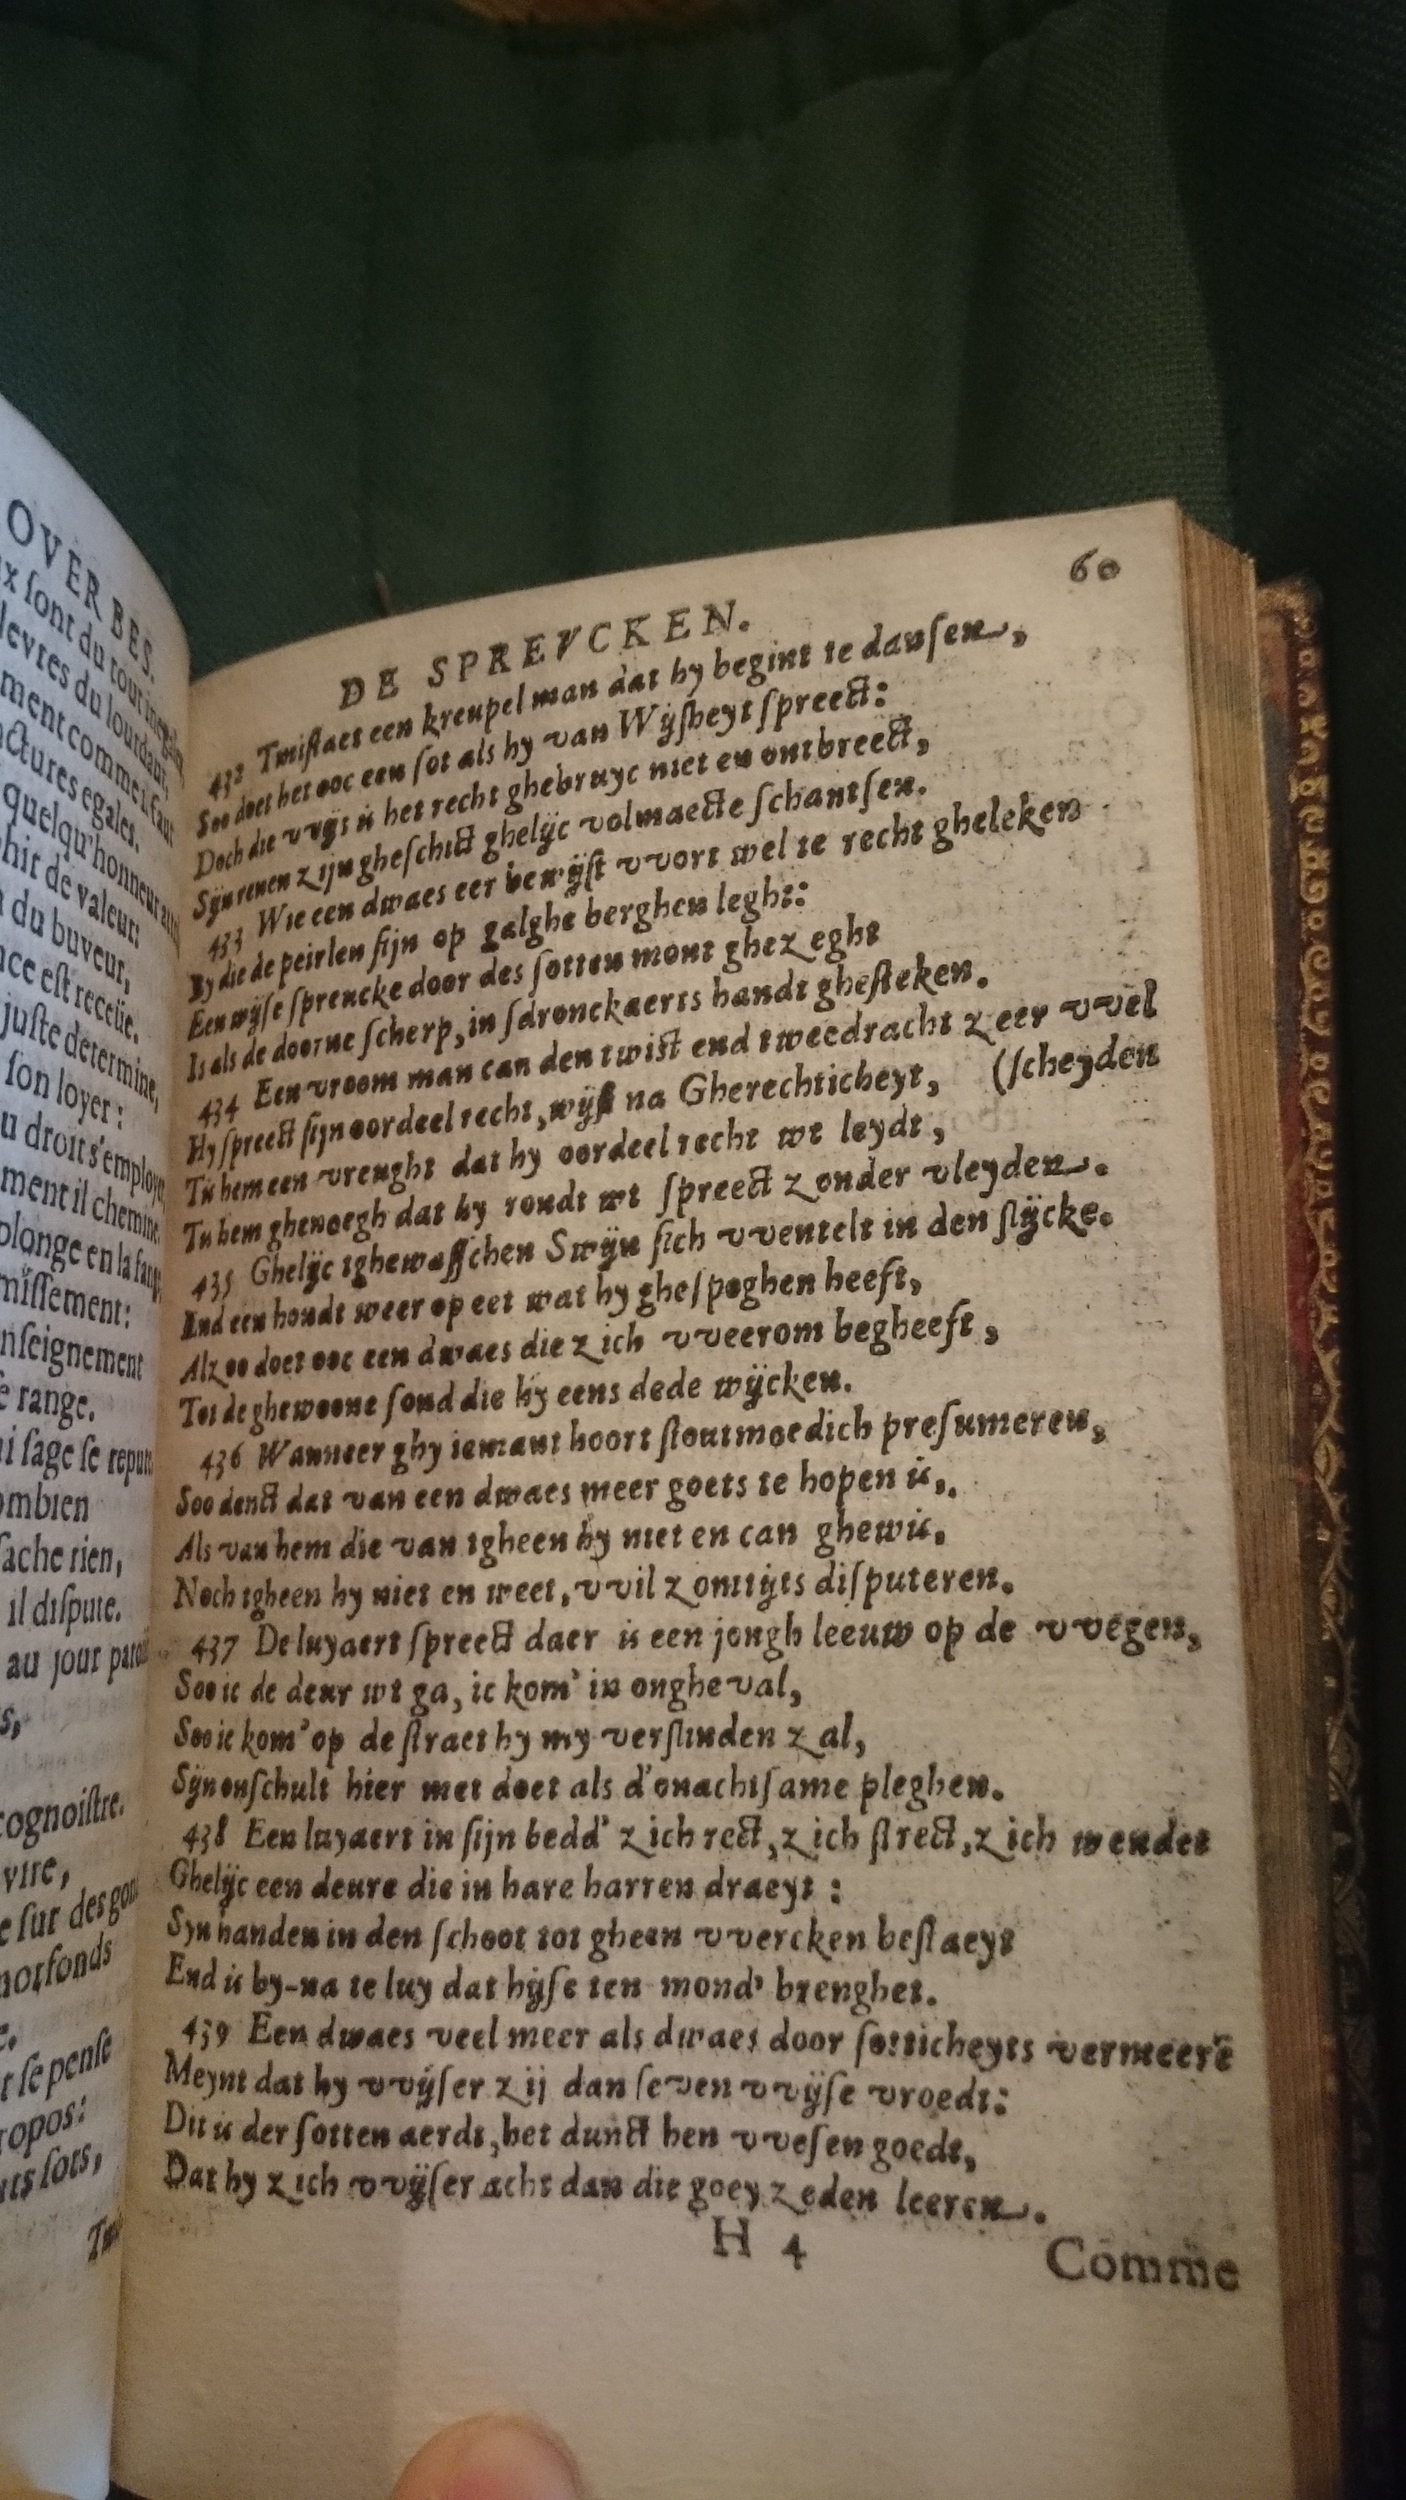 OVER BES.
x ſont du tout inegales
levres du lourdaut,
ment comme i faut
ctures egales.
quelqu'honneur
hit de valeur:
du buveur,
ce eſt receüe.
juſte determine,
ſon loyer:
u droit s'employe,
ment il chemine
plonge en la fang
miſſement:
nſeignement
range.
i ſage ſe repute
ombien
ſache rien,
il diſpute.
au jour
s,
cognoiſtre.
vire,
e ſur des gon
norfonds
r ſe penſe
ropos:
ts ſots,
60
DE SPREVCKEN.
432 Tmiſtaet een kreupel man dat hy begint te danſen,
Soo doet het ooc een ſot als hy van Wijſheyt ſpreect:
Doch die vvijs is het recht ghebruyc niet en ontbreect,
Sijn renen zijn gheſchict ghelijc volmaecte ſchantſen.
433 Wie een dwaes eer bewijſt vvort wel te recht gheleken
By die de peirlen ſijn op galghe berghen leght:
Een wijſe ſpreucke door des ſotten mont ghezeght
Is als de doorne ſcherp, in ſdronckaerts handt gheſteken.
434 Een vroom man can den twiſt end tweedracht zeer vvel
(ſcheyden
Hy ſpreect ſijn oordeel recht, wijſt na Gherechticheyt,
Tis hem een vreught dat hy oordeel recht wt leydt,
Tis hem ghenoegh dat hy rondt wt ſpreect zonder vleyden.
435 Ghelijc tghewaſſchen Swijn ſich vventelt in den ſlijcke.
End een hondt weer op eet wat hy gheſpoghen heeft,
Alzoo doet ooc een dwaes die zich vveerom begheeft,
Tot de ghewoone ſond die hy eens dede wijcken.
436 Wanneer ghy iemant hoort ſtoutmoedich preſumeren,
Soo denct dat van een dwaes meer goets te hopen is,
Als van hem die van tgheen hy niet en can ghewis,
Noch tgheen hy niet en weet, vvil zomtijts diſputeren.
437 De luyaert ſpreect daer is een jongh leeuw op de vvegen,
Soo ic de deur wt ga, ic kom' in ongheval,
Soo ic kom' op de ſtraet hy my verſlinden zal,
Sijn onſchult hier met doet als d'onachtſame pleghen.
438 Een luyaert in ſijn bedd' zich rect, zich ſtrect, zich wendet
Ghelijc een deure die in hare harren draeyt:
Syn handen in den ſchoot tot gheen vvercken beſlaeyt
End is by-na te luy dat hijſe ten mond' brenghet.
439 Een dwaes veel meer als dwaes door ſotticheyts vermeerē
Meynt dat hy vvijſer zij dan ſeven vvijſe vroedt:
Dit is der ſotten aerdt, het dunct hen vveſen goedt,
Dat hy zich vvijſer acht dan die goey zeden leeren.
H 4
Comme